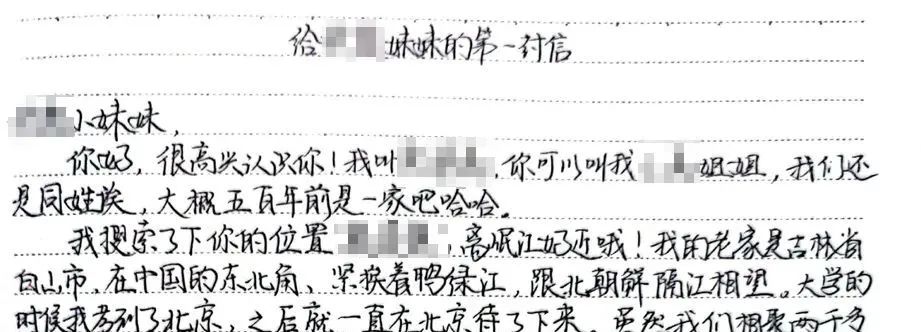 给 妹妹的第一封信
小妹妹，
你好，很高兴认识你！我叫 ，你可以叫我 姐姐，我们还
是同姓诶，大概五百年前是一家吧哈哈。
我搜索了下你的位置 ，离岷江好近哦！我的老家是吉林省
白山市，在中国的东北角、紧挨着鸭绿江，跟北朝鲜隔江相望。大学的
时候我考到了北京，之后就一直在北京待了下来。虽然我们相聚两千多